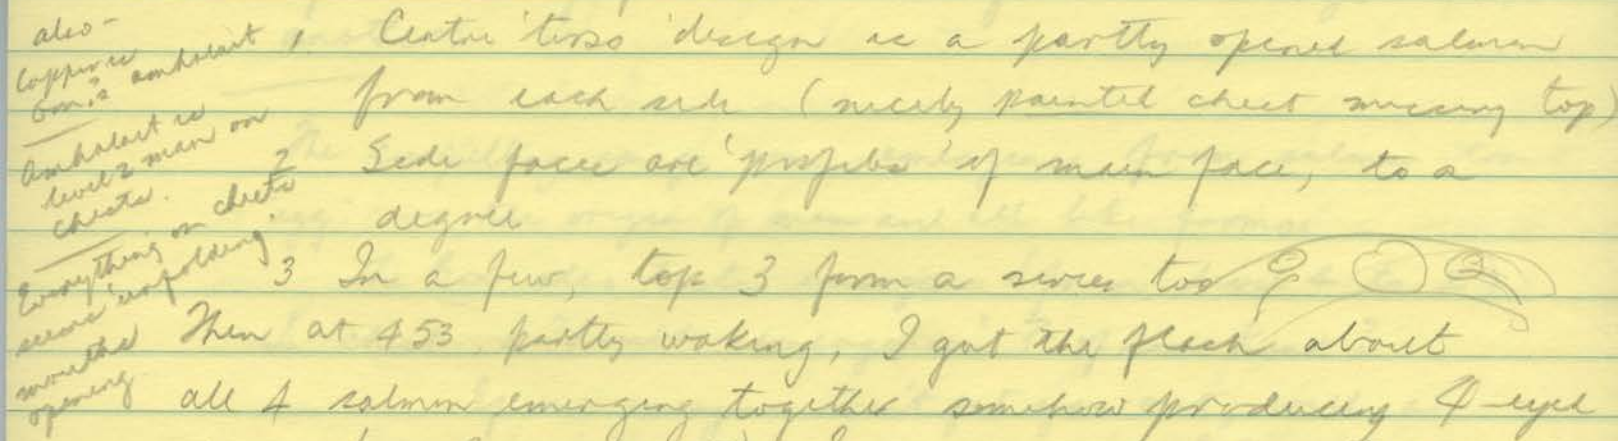 also -
Copper is
on is amhalait
Amhalait is
level 2 man on
chests.
Everything on chests
seems 'unfolding'
mouths
opening
1 Centre 'torso' design is a partly opened salmon
from each side (nicely painted chest missing top)
2 Side faces are 'profiles' of main face, to a
degree
3 In a few, top 3 form a series too
Then at 453 partly waking, I got the flash about
all 4 salmon emerging together somehow producing 4-eyed